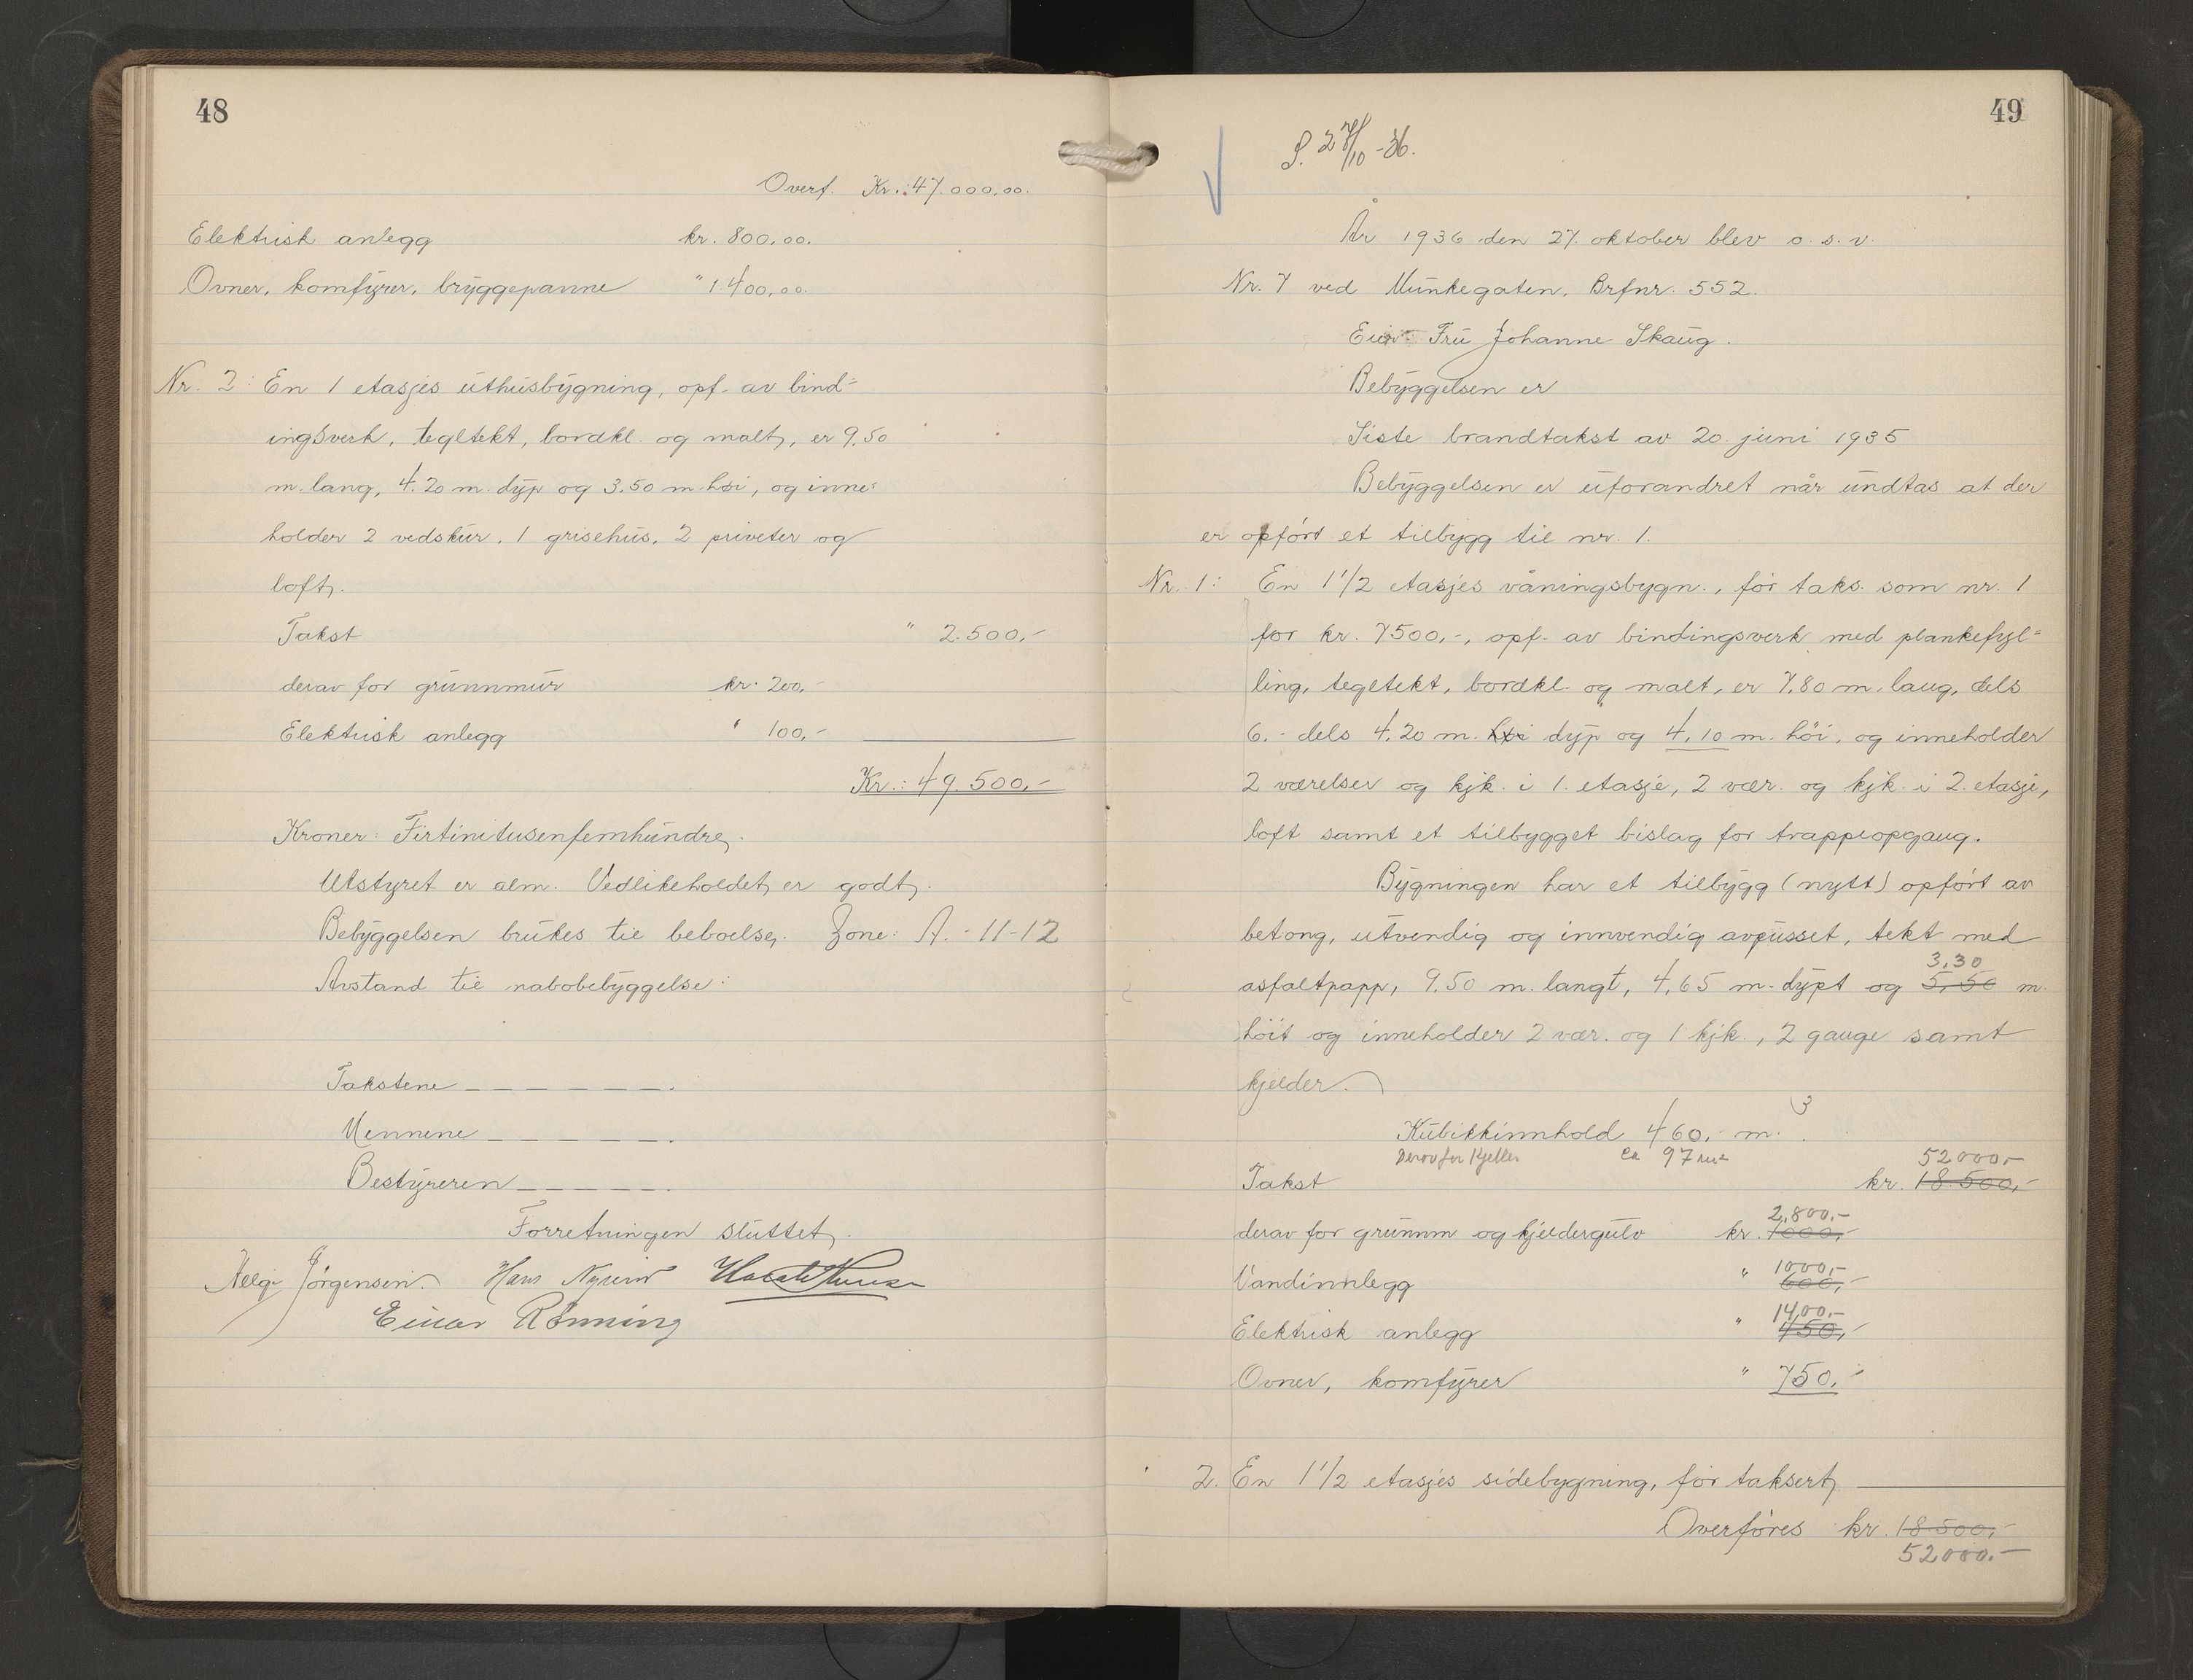 48
Overf. Kr.: 47.000,00.
Elektrisk anlegg kr. 800,00.
Ovner, komfyrer, bryggepanne " 1.400,00.
Nr. 2: En 1 etasjes uthusbygning, opf. av bind=
ingsverk, tegltekt, bordkl. og malt, er 9,50
m. lang, 4.20 m. dyp og 3.50 m. høi, og inne=
holder 2 vedskur, 1 grisehus, 2 priveter og
loft.
Takst " 2.500,-
derav for grunnmur kr. 200,-
Elektrisk anlegg " 100,-
Kr.: 49.500,-
Kroner: Firtinitusenfemhundre.
Utstyret er alm. Vedlikeholdet er godt.
Bebyggelsen brukes til beboelse. Zone: A. - 11-12
Avstand til nabobebyggelse:
Takstene — — — — — —.
Mennene — — — — — —.
Bestyreren — — — — —.
Forretningen sluttet.
Helge Jørgensen. Hans
Einar Rønning
49
S. 27/10-36.
År 1936 den 27. oktober blev o.s.v.
Nr. 7 ved Munkegaten. Brfnr. 552.
Eier Fru Johanne Skaug.
Bebyggelsen er
Siste brandtakst av 20. juni 1935
Bebyggelsen er uforandret når undtas at der
er opført et tilbygg til nr. 1.
Nr. 1: En 1 1/2 etasjes våningsbygn., før taks. som nr. 1
for kr. 7500,-, opf. av bindingsverk med plankefyl=
ling, tegltekt, bordkl. og malt, er 7,80 m. lang, dels
6.- dels 4,20 m. høi dyp og 4,10 m. høi, og inneholder
2 værelser og kjk. i 1. etasje, 2 vær. og kjk. i 2. etasje,
loft samt et tilbygget bislag for trappeopgang.
Bygningen har et tilbygg (nytt) opført av
betong, utvendig og innvendig avpusset, tekt med
3,30
asfaltpapp, 9.50 m. langt, 4,65 m. dypt og 5,50 m.
høit og inneholder 2 vær. og 1 kjk., 2 gange samt
kjelder.
Kubikkinnhold 460,- m3.
Derav for Kjeller ca 97 m2
52000,-
Takst kr. 18.500,-
2,800,-
derav for grunnm og kjeldergulv kr. 1000,-
1000,-
Vandinnlegg " 600,-
1400,-
Elektrisk anlegg " 450,-
Ovner, komfyrer " 750,-
2. En 1 1/2 etasjes sidebygning, før taksert
Overføres kr. 18 500,-
52000.-